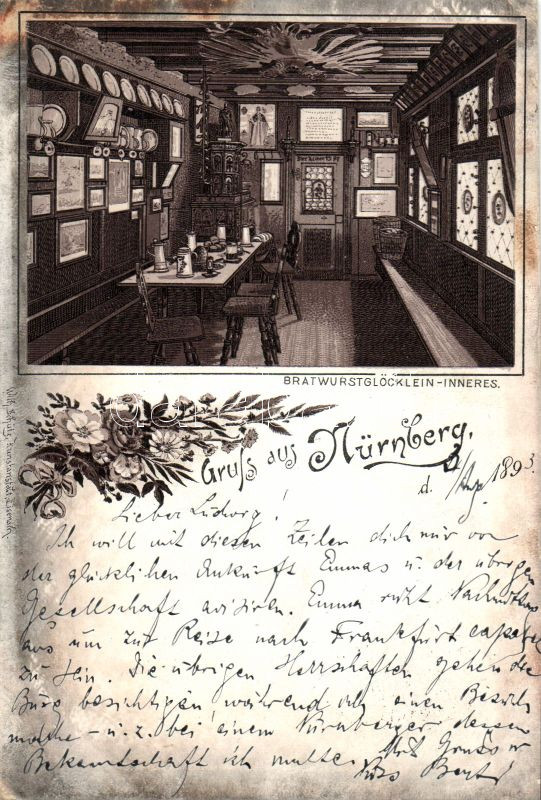 BRATWURSTGLÖCKLEIN-INNERES.
Gruß aus Nürnberg.
d. Aug. 1893.
Lieber Ludwig!
Ich will mit diesen Zeilen dich nur von
der glücklichen Ankunft Emmas u. der übrigen
Gesellschaft avisiren. Emma ruht Nachmittags
aus um zur Reise nach Frankfurt capabel
zu sein. Die übrigen Herrschaften gehen die
Burg besichtigen während ich einen Besuch
mache - u. z. bei einem Nürnberger dessen
Bekanntschaft ich machte. Mit Gruss u
Kuss